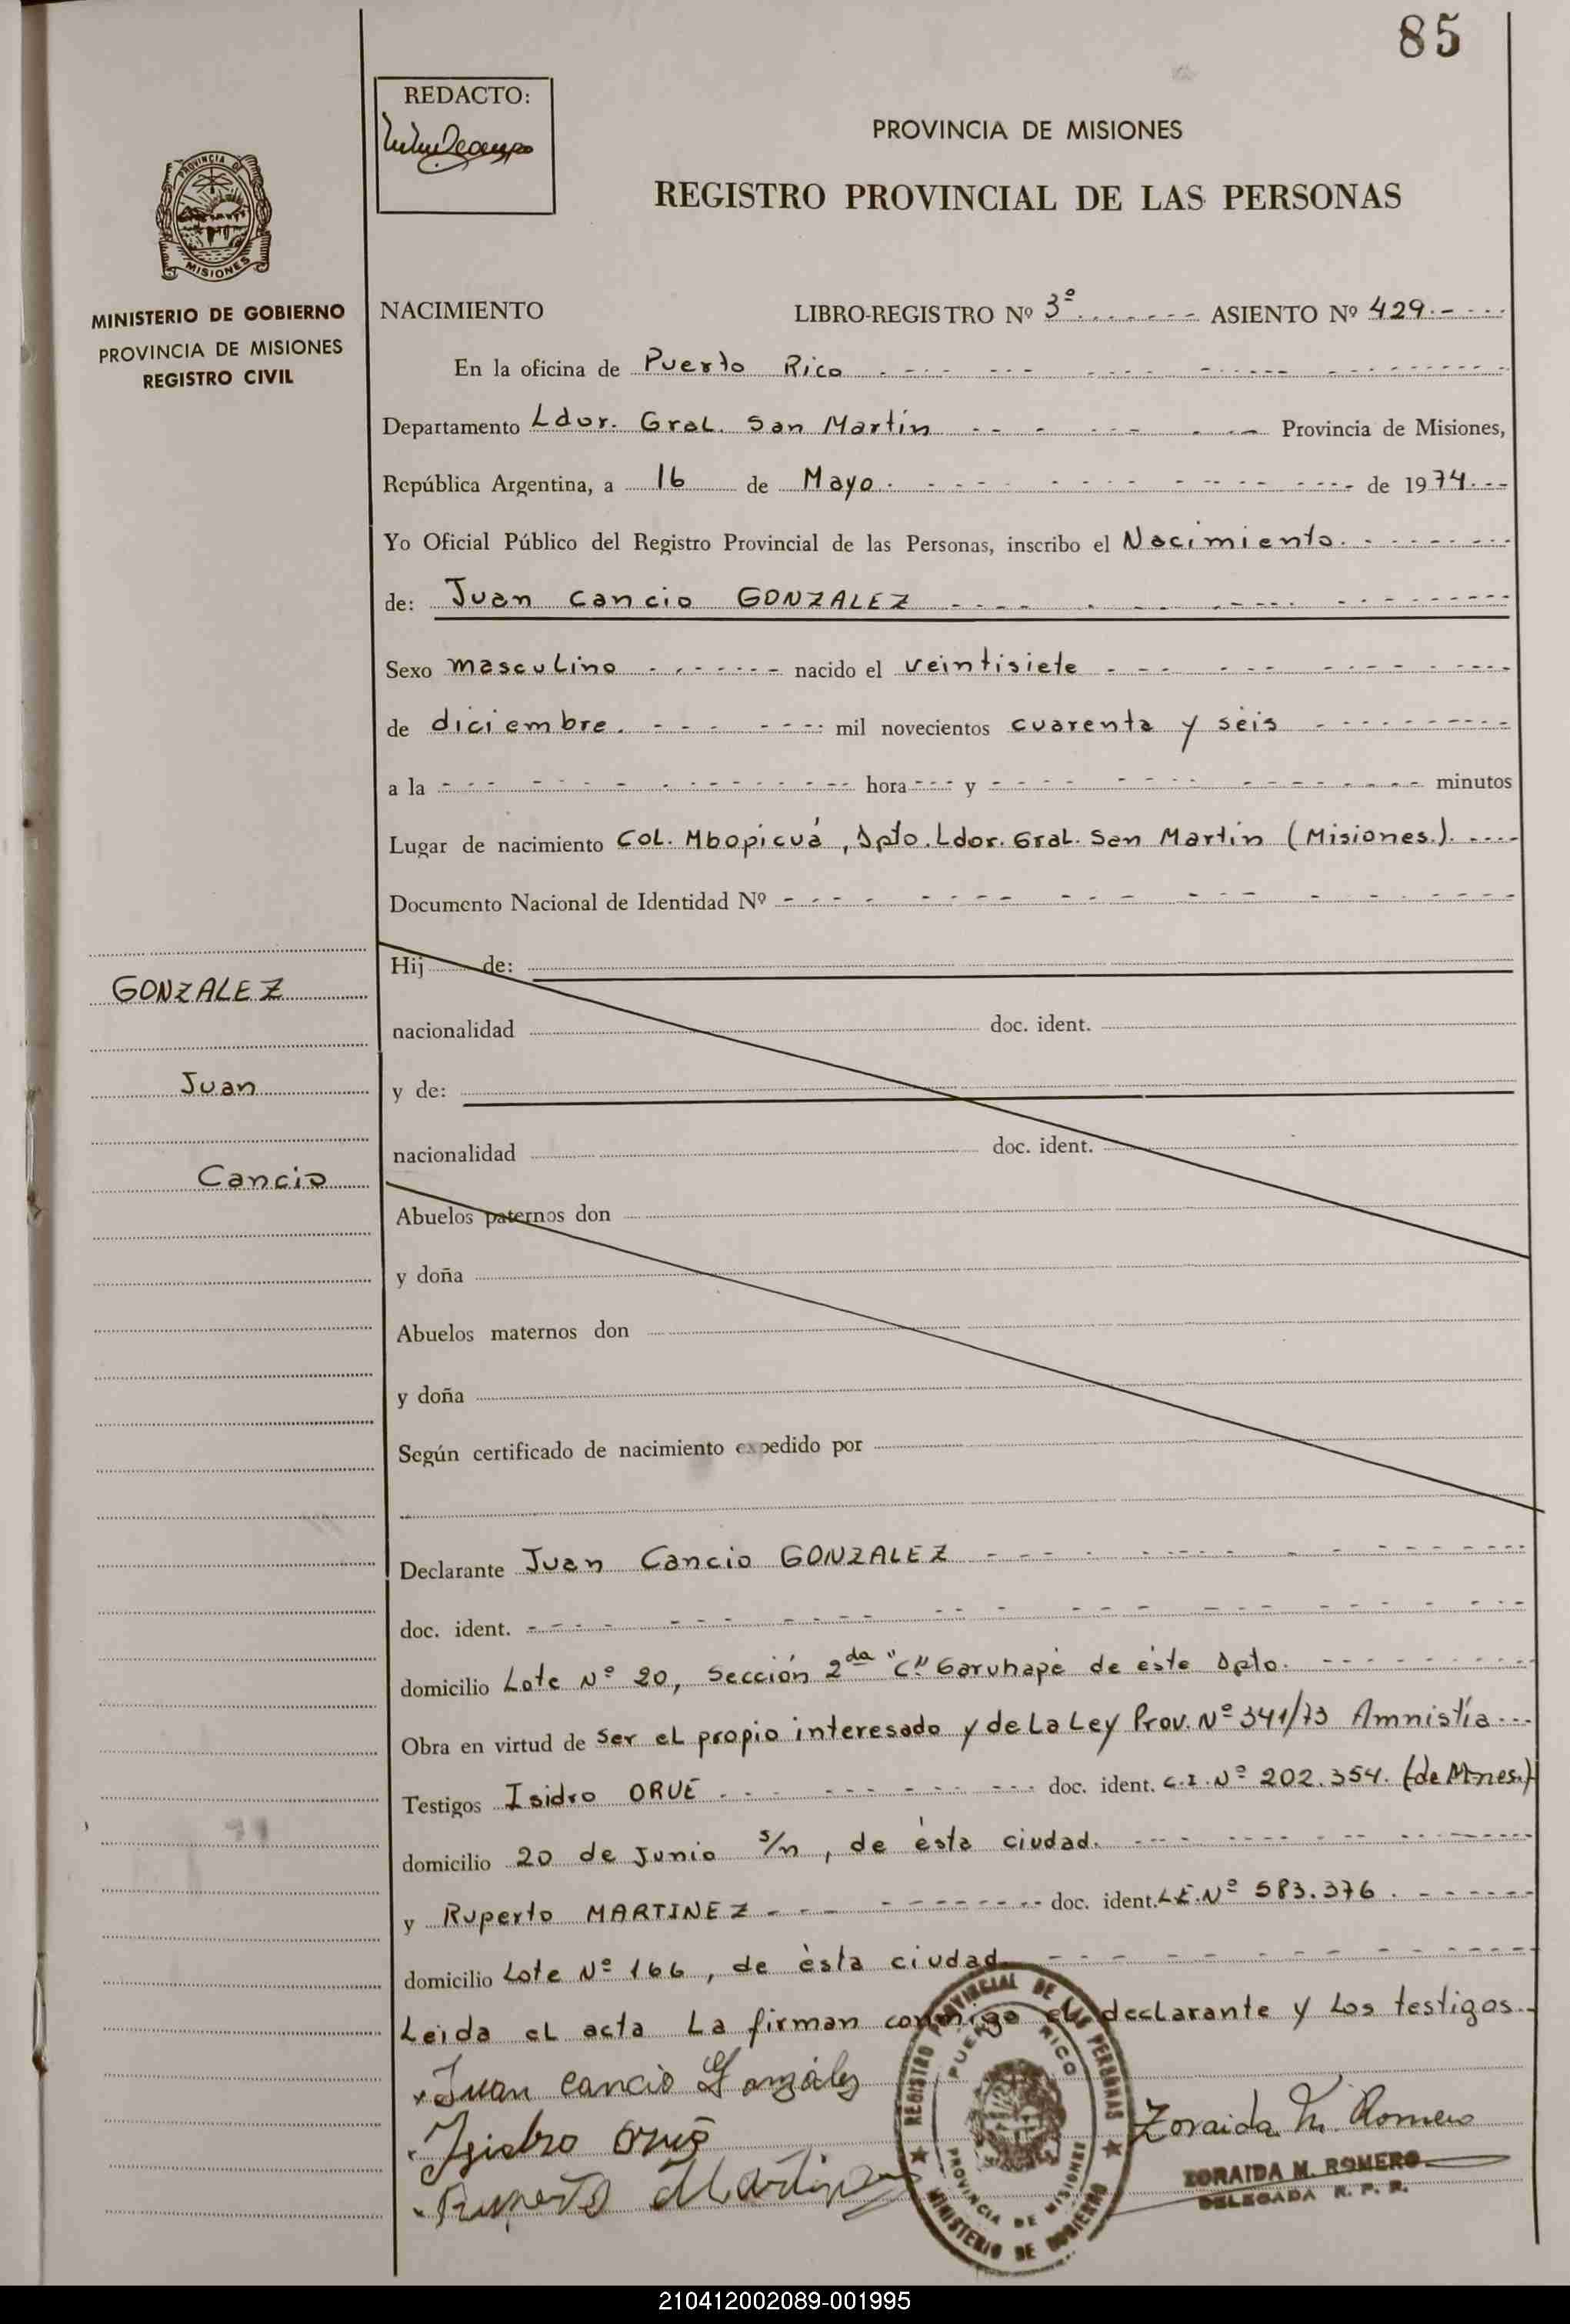 85
REDACTO:
PROVINCIA DE MISIONES
REGISTRO PROVINCIAL DE LAS PERSONAS
PROVINCIA DE
MISIONES
MINISTERIO DE GOBIERNO
PROVINCIA DE MISIONES
REGISTRO CIVIL
NACIMIENTO LIBRO-REGISTRO Nº 3º ASIENTO Nº 429.-
En la oficina de Puerto Rico
Departamento Ldor. Gral. San Martín Provincia de Misiones,
República Argentina, a 16 de Mayo. de 1974.
Yo Oficial Público del Registro Provincial de las Personas, inscribo el Nacimiento.
de: Juan Cancio GONZALEZ
Sexo masculino nacido el veintisiete
de diciembre. mil novecientos cuarenta y séis
a la hora y minutos
Lugar de nacimiento Col. Mbopicuá, Dpto. Ldor. Gral. San Martín (Misiones.).
Documento Nacional de Identidad Nº
Hij de:
nacionalidad doc. ident.
y de:
nacionalidad doc. ident.
Abuelos paternos don
y doña
Abuelos maternos don
y doña
Según certificado de nacimiento expedido por
GONZALEZ
Juan
Cancio
Declarante Juan Cancio GONZALEZ
doc. ident.
domicilio Lote Nº 20, Sección 2da "C" Garuhapé de éste Dpto.
Obra en virtud de ser el propio interesado y de La Ley Prov. Nº 341/73 Amnistía
Testigos Isidro ORUÉ doc. ident. C.I. Nº 202.354. (de Mnes.)
domicilio 20 de Junio s/n, de ésta ciudad.
y Ruperto MARTINEZ doc. ident. L.E. Nº 583.376.
domicilio Lote Nº 166, de ésta ciudad.
Leída el acta La firman conmigo el declarante y Los testigos.
Juan cancio González
Isidro Orué
Ruperto Martinez
REGISTRO PROVINCIAL DE LAS PERSONAS
PUERTO RICO
PROVINCIA DE MISIONES
MINISTERIO DE GOBIERNO
Zoraida M. Romero
ZORAIDA M. ROMERO
DELEGADA R. P. P.
210412002089-001995